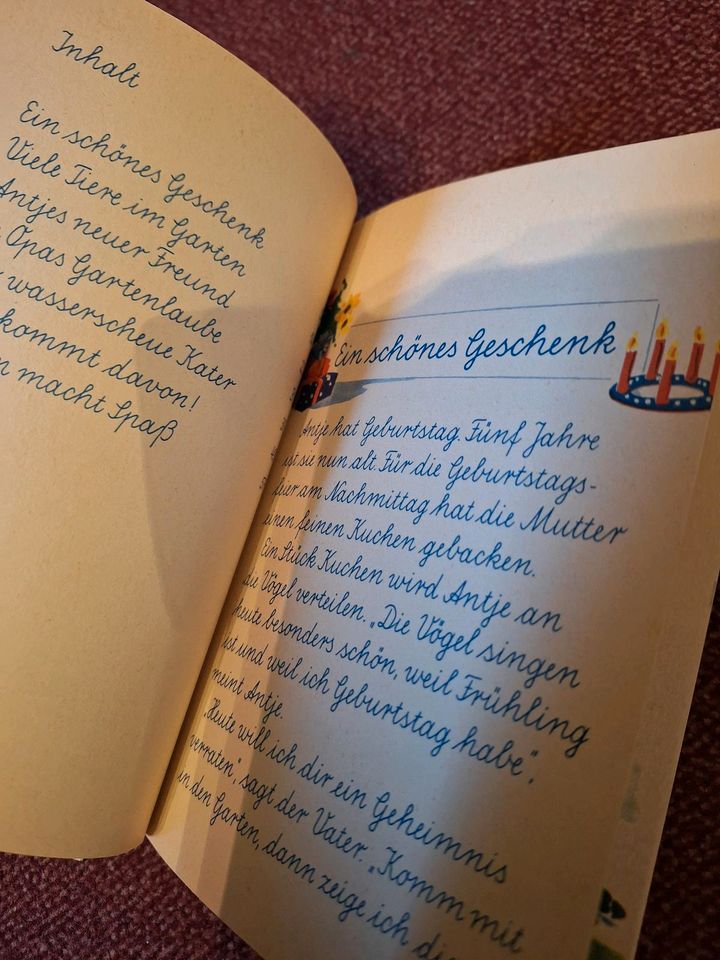 Inhalt
Ein schönes Geschenk
Viele Tiere im Garten
Antjes neuer Freund
Opas Gartenlaube
wasserscheue Kater
kommt davon!
macht Spaß
Ein schönes Geschenk
Antje hat Geburtstag. Fünf Jahre
ist sie nun alt. Für die Geburtstags-
feier am Nachmittag hat die Mutter
einen feinen Kuchen gebacken.
Ein Stück Kuchen wird Antje an
die Vögel verteilen. „Die Vögel singen
heute besonders schön, weil Frühling
ist und weil ich Geburtstag habe“,
meint Antje.
„Heute will ich dir ein Geheimnis
verraten“, sagt der Vater. „Komm mit
in den Garten, dann zeige ich